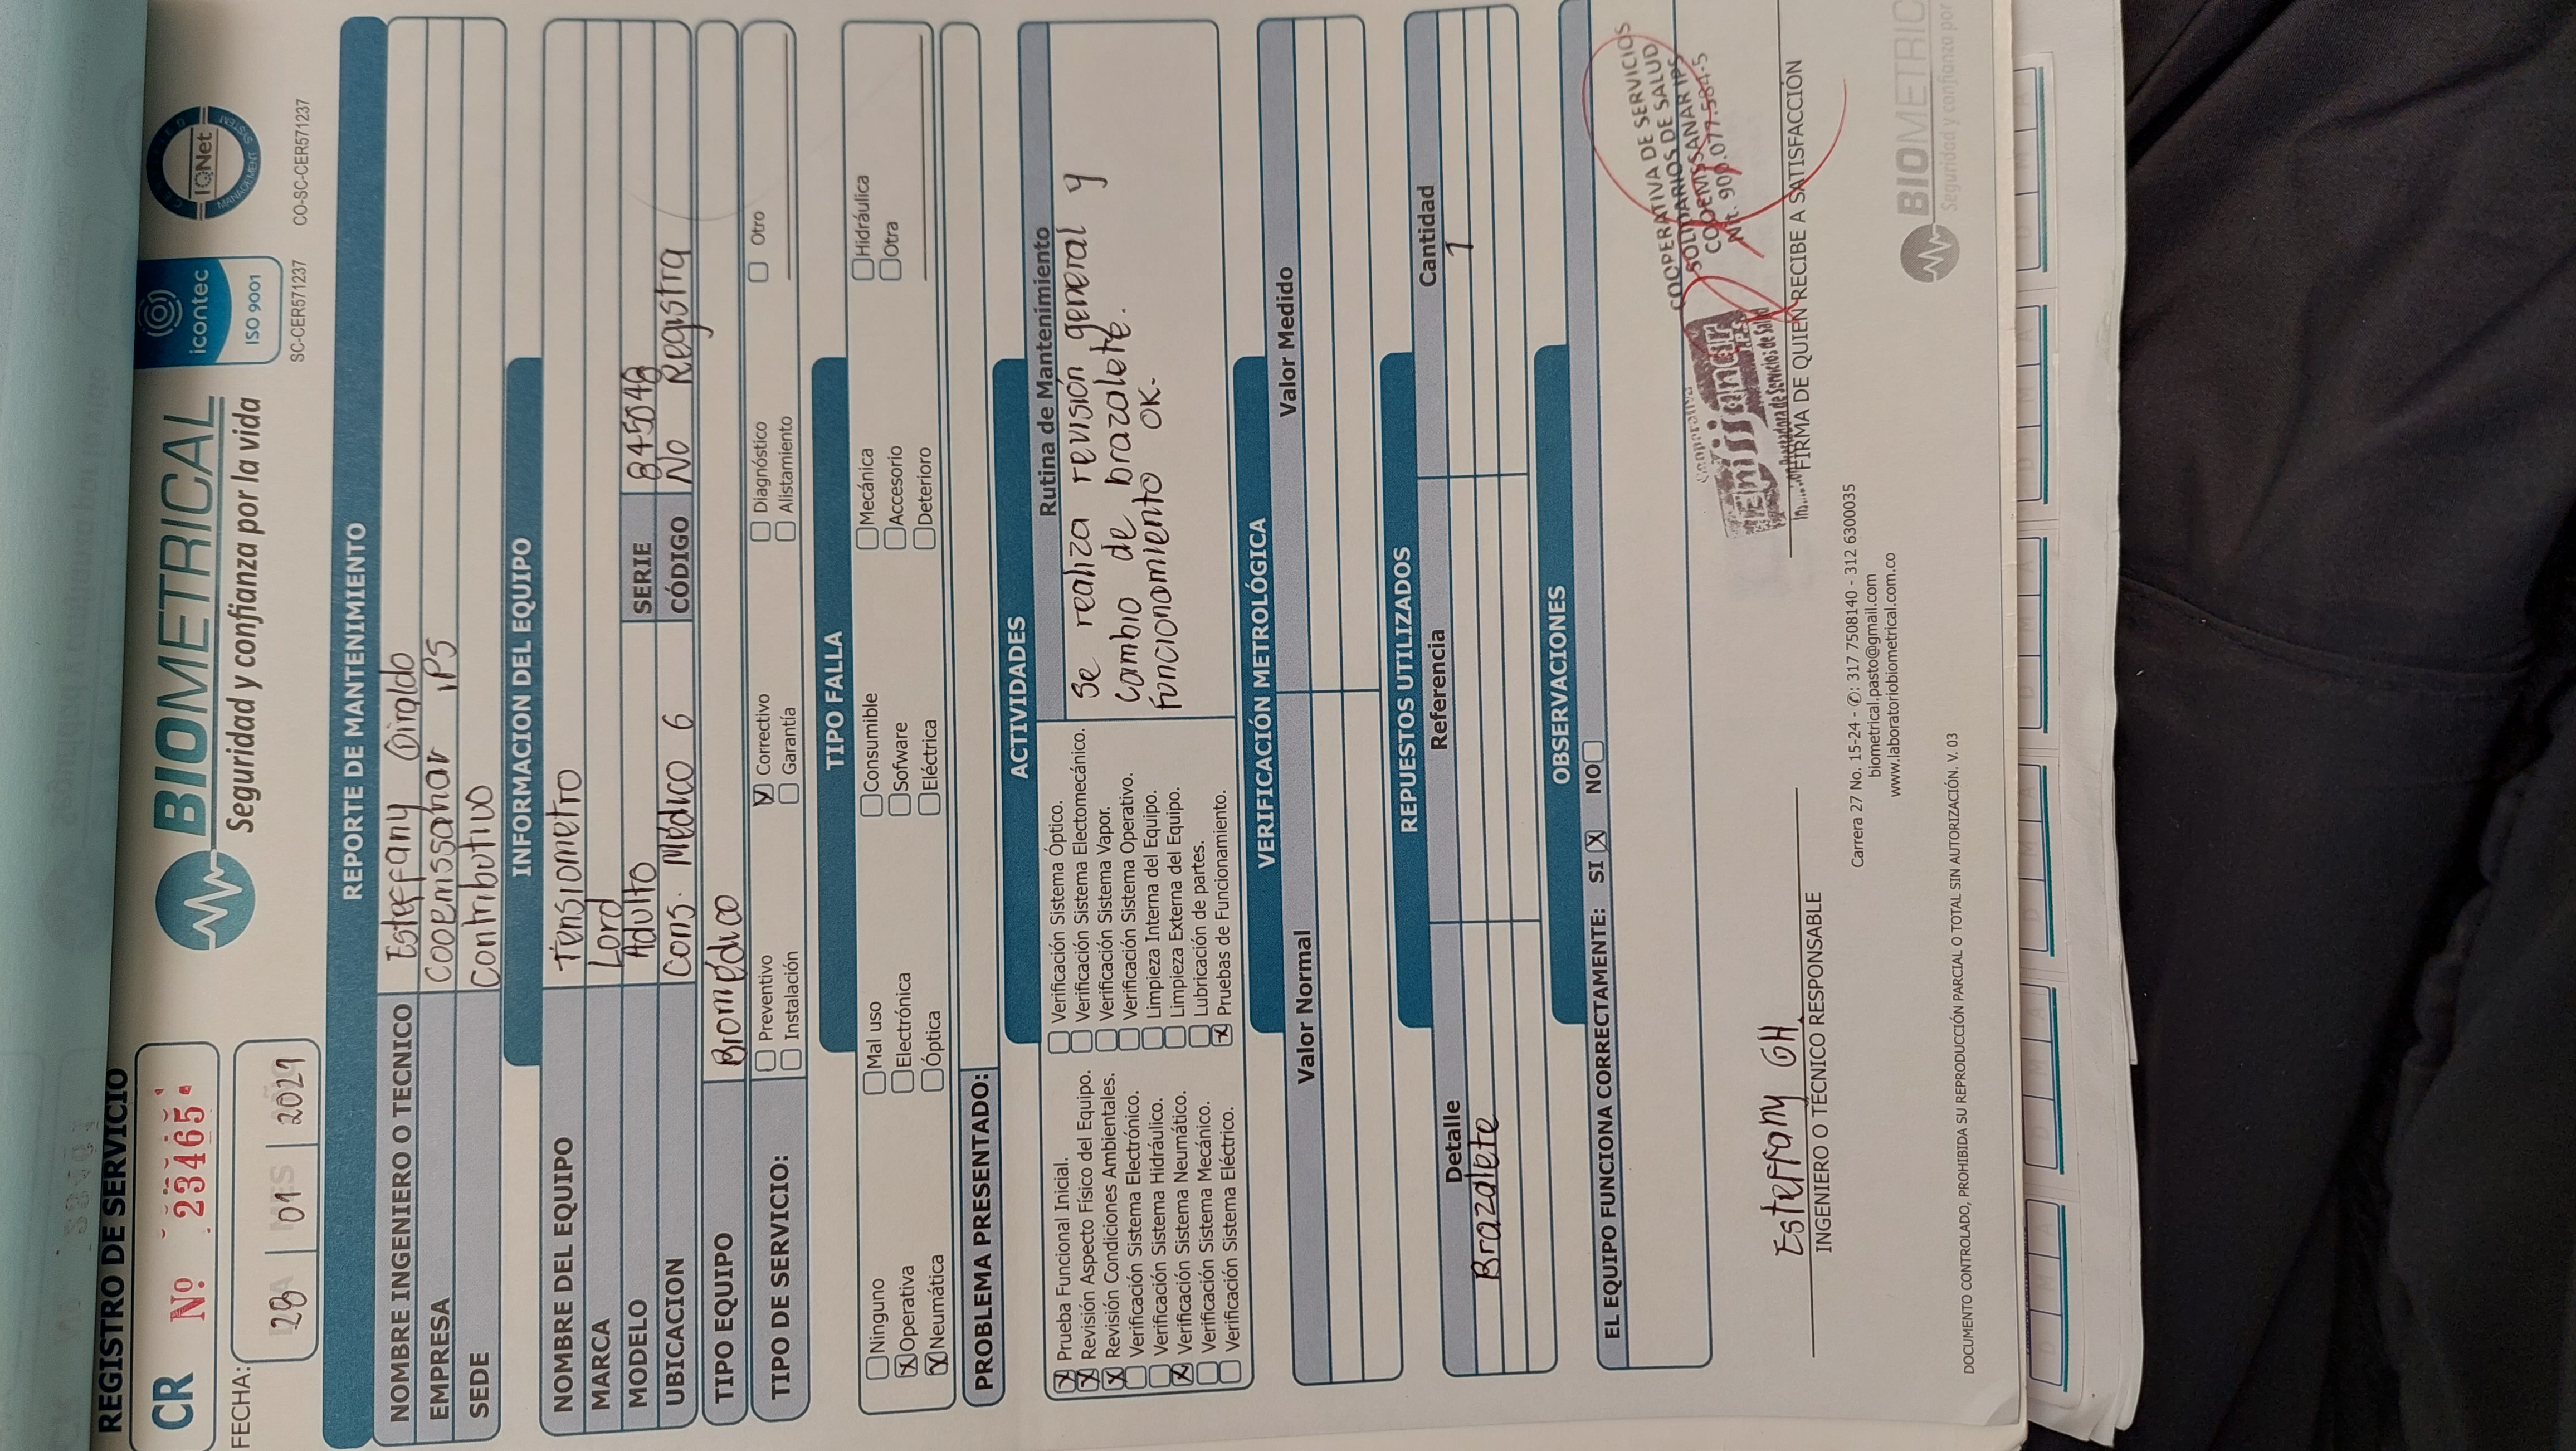 REGISTRO DE SERVICIO
CR Nº 23465
FECHA: 28 01 2021
BIOMETRICAL
Seguridad y confianza por la vida
icontec
ISO 9001
SC-CER571237
CERTIFIED
IQNet
MANAGEMENT SYSTEM
CO-SC-CER571237
REPORTE DE MANTENIMIENTO
NOMBRE INGENIERO O TECNICO Esteffany Giraldo
EMPRESA Cooemssanar IPS
SEDE Contributivo
INFORMACION DEL EQUIPO
NOMBRE DEL EQUIPO Tensiometro
MARCA Lord
MODELO Adulto SERIE 845048
UBICACION Cons. Médico 6 CÓDIGO No Registra
TIPO EQUIPO Biomédico
TIPO DE SERVICIO:
Preventivo Correctivo Diagnóstico Otro
Instalación Garantía Alistamiento
TIPO FALLA
Ninguno Mal uso Consumible Mecánica Hidráulica
Operativa Electrónica Sofware Accesorio Otra
Neumática Óptica Eléctrica Deterioro
PROBLEMA PRESENTADO:
ACTIVIDADES
Prueba Funcional Inicial.
Revisión Aspecto Físico del Equipo.
Revisión Condiciones Ambientales.
Verificación Sistema Electrónico.
Verificación Sistema Hidráulico.
Verificación Sistema Neumático.
Verificación Sistema Mecánico.
Verificación Sistema Eléctrico.
Verificación Sistema Óptico.
Verificación Sistema Electomecánico.
Verificación Sistema Vapor.
Verificación Sistema Operativo.
Limpieza Interna del Equipo.
Limpieza Externa del Equipo.
Lubricación de partes.
Pruebas de Funcionamiento.
Rutina de Mantenimiento
Se realiza revisión general y
cambio de brazalete.
Funcionamiento OK.
VERIFICACIÓN METROLÓGICA
Valor Normal Valor Medido
REPUESTOS UTILIZADOS
Detalle Referencia Cantidad
Brazalete 1
OBSERVACIONES
EL EQUIPO FUNCIONA CORRECTAMENTE: SI X NO
COOPERATIVA DE SERVICIOS
SOLIDARIOS DE SALUD
COOEMSSANAR IPS
Nit. 900.077.584-5
Cooperativa
Emssanar
I.P.S.
Prestadora de Servicios de Salud
Esteffany GH.
INGENIERO O TÉCNICO RESPONSABLE
FIRMA DE QUIEN RECIBE A SATISFACCIÓN
Carrera 27 No. 15-24 - ✆: 317 7508140 - 312 6300035
biometrical.pasto@gmail.com
www.laboratoriobiometrical.com.co
BIOMETRIC
Seguridad y confianza por
DOCUMENTO CONTROLADO, PROHIBIDA SU REPRODUCCIÓN PARCIAL O TOTAL SIN AUTORIZACIÓN. V. 03